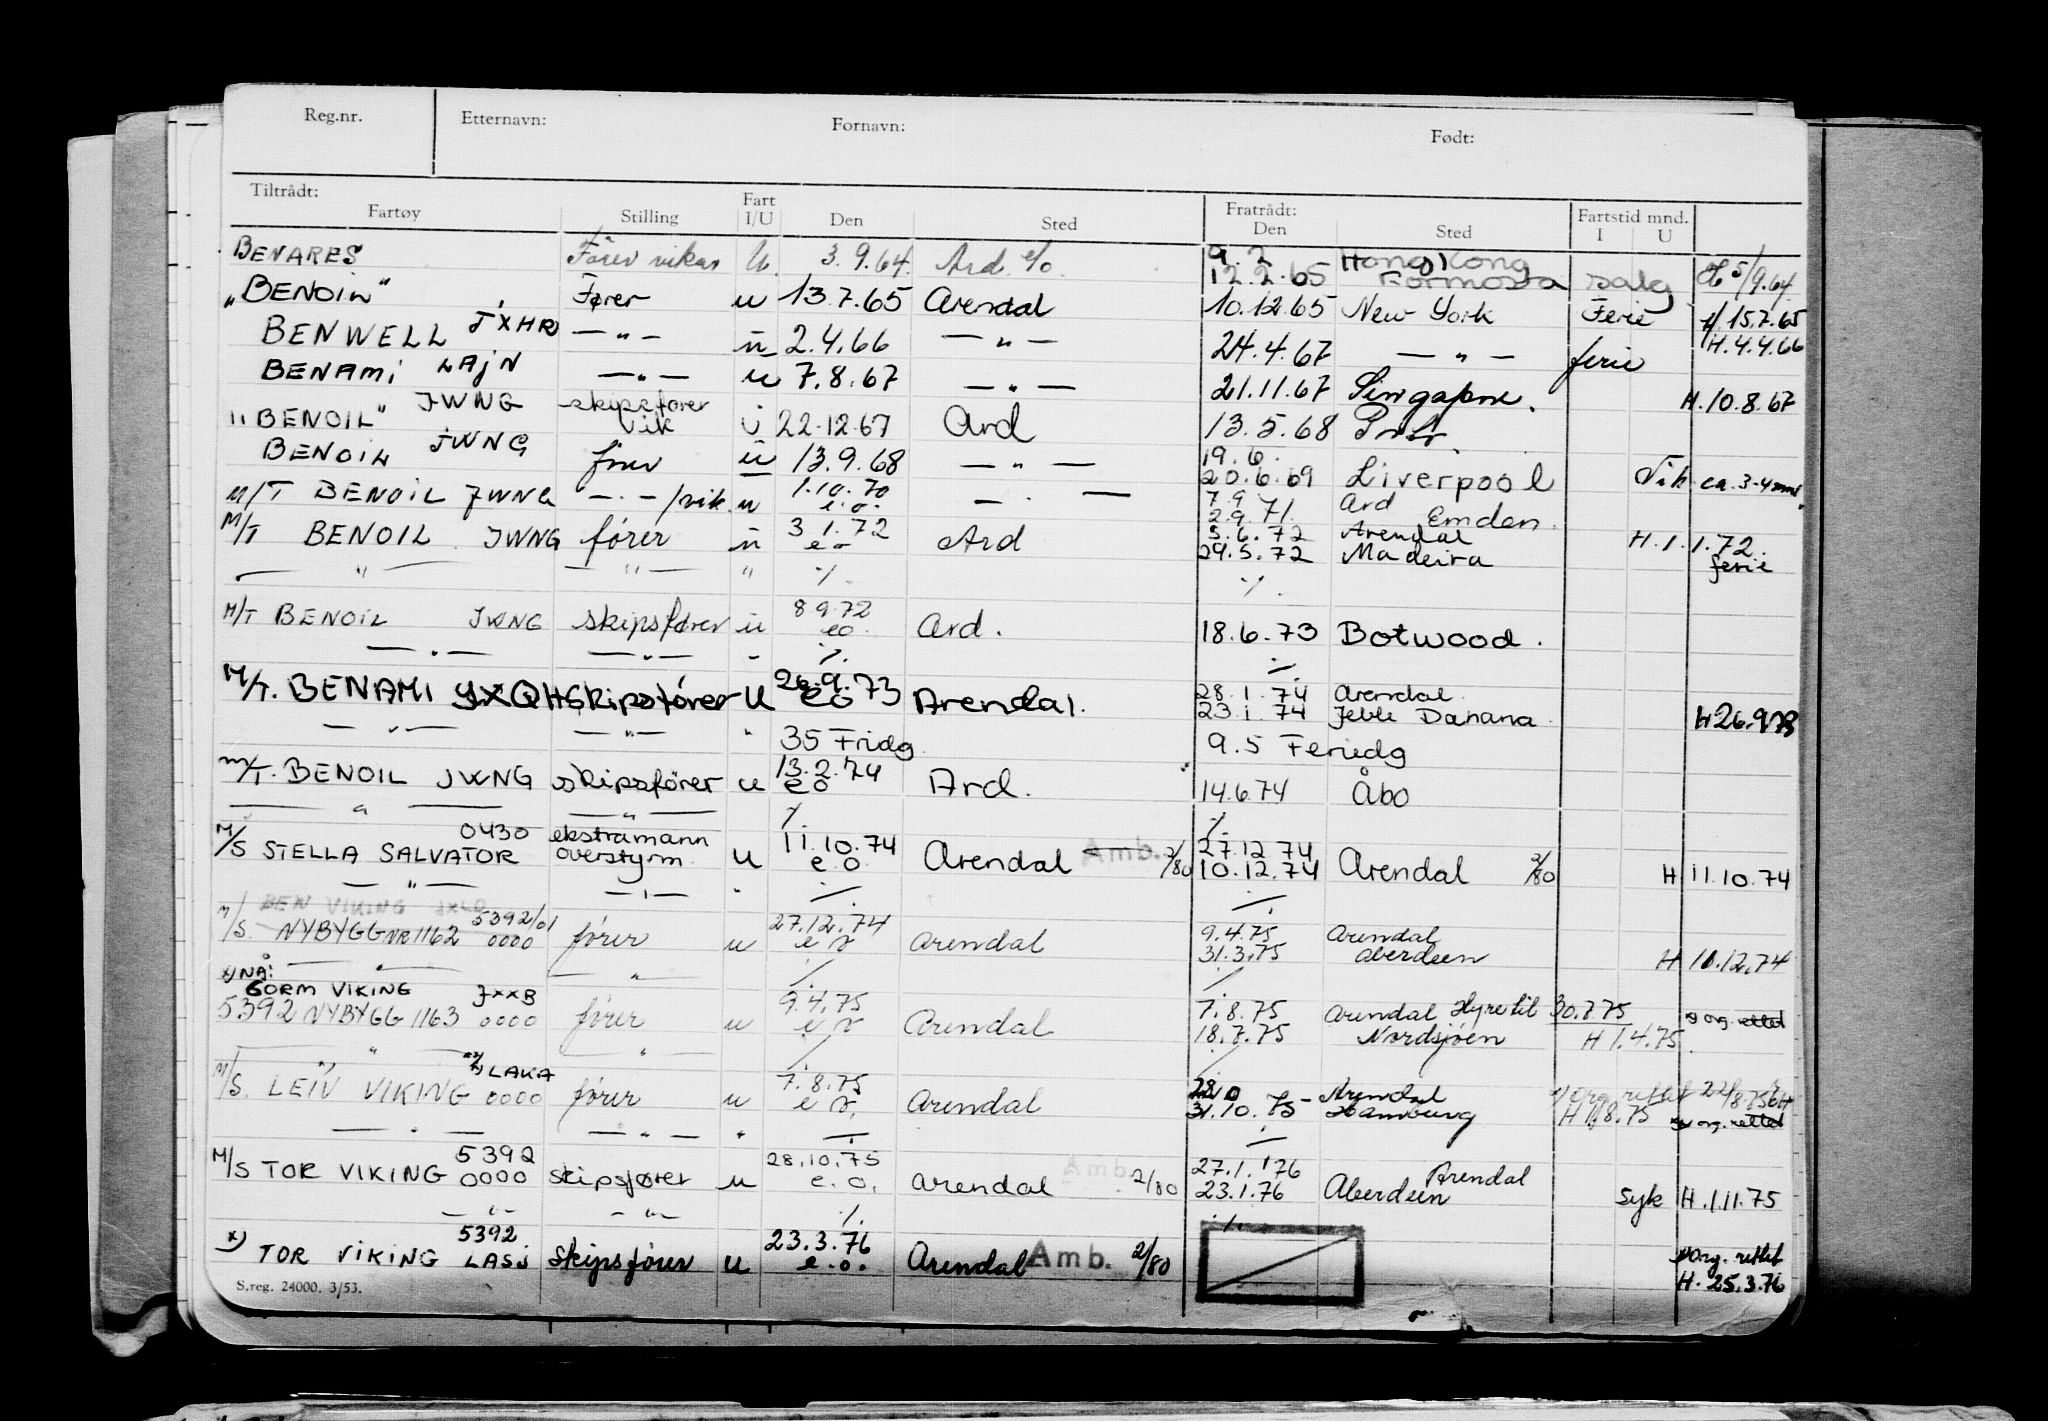 Reg.nr. Etternavn: Fornavn: Født:
Tiltrådt: Fratrådt: Fartstid mnd.
Fartøy Stilling Fart I/U Den Sted Den Sted I U
BENARES Fører vikar U. 3.9.64. Ard e/o. 9.2 Hong Kong
12.2.65 Formosa Salg H 5/9.64.
"BENOIL" Fører u 13.7.65 Arendal 10.12.65 New York Ferie H.15.7.65
BENWELL JXHR — " — u 2.4.66 — " — 24.4.67 — " — ferie H.4.4.66
BENAMI LAJN — " — u 7.8.67 — " — 21.11.67 Singapore. H.10.8.67
"BENOIL" JWNG skipsfører vik u 22.12.67 Ard 13.5.68
BENOIL JWNG fører u 13.9.68 — " — 19.6.
20.6.69 Liverpool Vik. ca. 3-4 mnd.
M/T BENOIL JWNG — " — /vik. u 1.10.70 e.o. — " — 7.9 Ard
2.9.71. Emden.
M/T BENOIL JWNG fører u 3 1.72 e o Ard 5.6.72 Arendal
29.5.72 Madeira H.1.1.72. ferie
— " — — " — " ./. ./.
M/T BENOIL JWNG skipsfører u 8 9.72 eo. Ard. 18.6.73 Botwood.
— " — — " — " ./. ./.
M/T. BENAMI JXQH Skipsfører U 26.9.73 eo Arendal. 28.1.74 Arendal.
23.1.74 Jeble Danana. H 26.9.73
— " — — " — " 35 Fridg. 9.5 Feriedg
M/T. BENOIL JWNG skipsfører u 13.2.74 eo Ard. 14.6.74 Åbo
— " — — " — ./. ./.
M/S STELLA SALVATOR 0430 ekstramann overstyrm. u 11.10.74 e o Arendal Amb. 2/80 27.12 74
10.12.74 Arendal 2/80 H 11.10.74
— " — — " — " ./. ./.
BEN VIKING
M/S. NYBYGG NR 1162 5392/01 0000 fører u 27.12.74 e o Arendal 9.4.75 Arendal
31.3.75 Aberdeen H 10.12.74
— " — — " — ./. ./.
x) NÅ:
GORM VIKING JXXB
5392 NYBYGG 1163 0000 fører u 9.4.75 e o Arendal 7.8.75 Arendal Hyre til 30.7.75
18.7.75 Nordsjøen H 1.4.75. x) org. rettet
— " — — " — ./. ./.
M/S. LEIV VIKING LAKA 0000 fører u 7.8.75 e o, Arendal 28.10 - Arendal
31.10.75 Hamburg x) Org rettet 22/8.75
H 1.8.75 org. rettet
— " — — " — " ./. ./.
M/S TOR VIKING 5392 0000 skipsfører u 28.10.75 e.o. Arendal Amb. 2/80 27.1.76 Arendal
23.1.76 Aberdeen Syk H.1.11.75
— " — — " — ./. ./.
x) TOR VIKING 5392 LASJ Skipsfører u 23.3.76 e.o. Arendal Amb. 2/80 x) Org. rettet
H. 25.3.76
S.reg. 24000. 3/53.